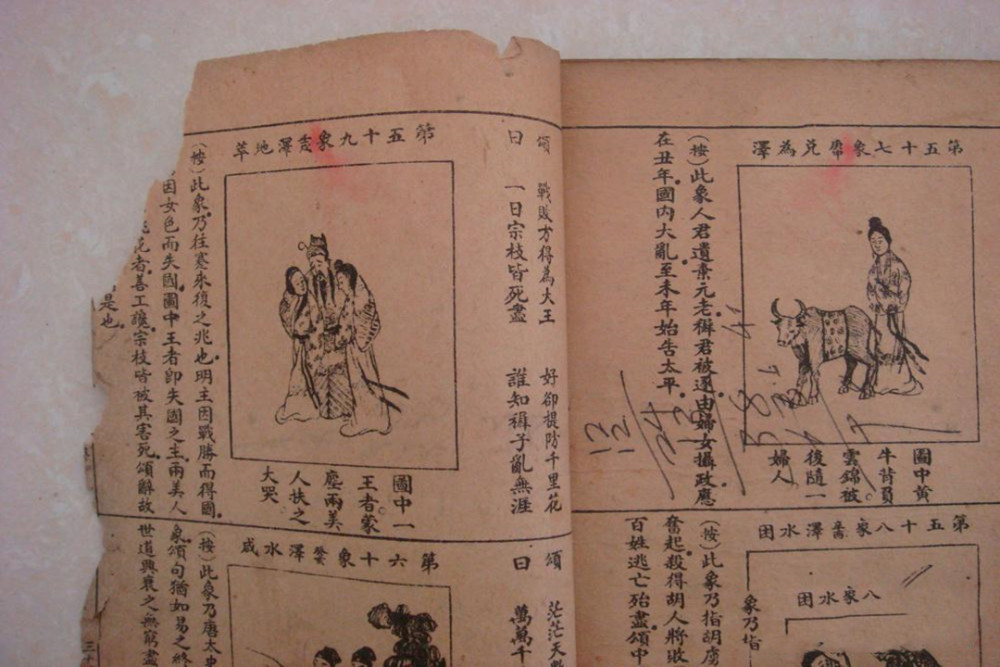 第五十七象 兌為澤
圖中黄
牛背負
雲錦被
後隨一
婦人
(按)此象人君遺棄元老稱君被逐由婦女攝政應
在丑年國内大亂至未年始告太平
第五十八象 澤水困
八象水困
象乃指
(按)此象乃指胡虜
奮起殺得胡人將敗
百姓逃亡殆盡頌中
頌曰
戰敗方得為大王 好卻提防千里花
一日宗枝皆死盡 誰知褥子亂無涯
第五十九象 澤地萃
圖中一
王者蒙
塵兩美
人扶之
大哭
(按)此象乃往蹇來復之兆也明主因戰勝而得國
因女色而失國圖中王者即失國之主兩美人
者善工讒宗枝皆被其害死頌辭故
是也
頌曰
茫茫天數
萬萬千
第六十象 澤水咸
(按)此象乃唐太史
象頌句猶如易之終
世道興衰之無窮盡